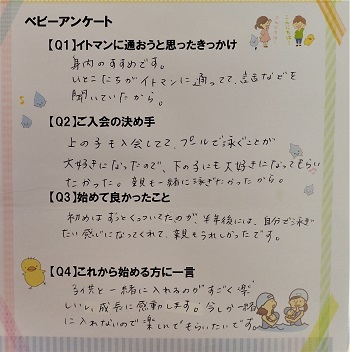 ベビーアンケート
【Q1】イトマンに通おうと思ったきっかけ
身内のすすめです。
いとこたちがイトマンに通ってて、話などを
聞いていたから。
【Q2】ご入会の決め手
上の子も入会してて、プールで泳ぐことが
大好きになったので、下の子にも大好きになってもらい
たかった。親も一緒に泳ぎたかったから。
【Q3】始めて良かったこと
初めはずっとくっついてたのが、半年後には、自分で泳ぎ
たい感じになってくれて、親もうれしかったです。
【Q4】これから始める方に一言
子供と一緒に入れるのがすごく楽
しいし、成長に感動します。今しか一緒
に入れないので楽しんでもらいたいです。